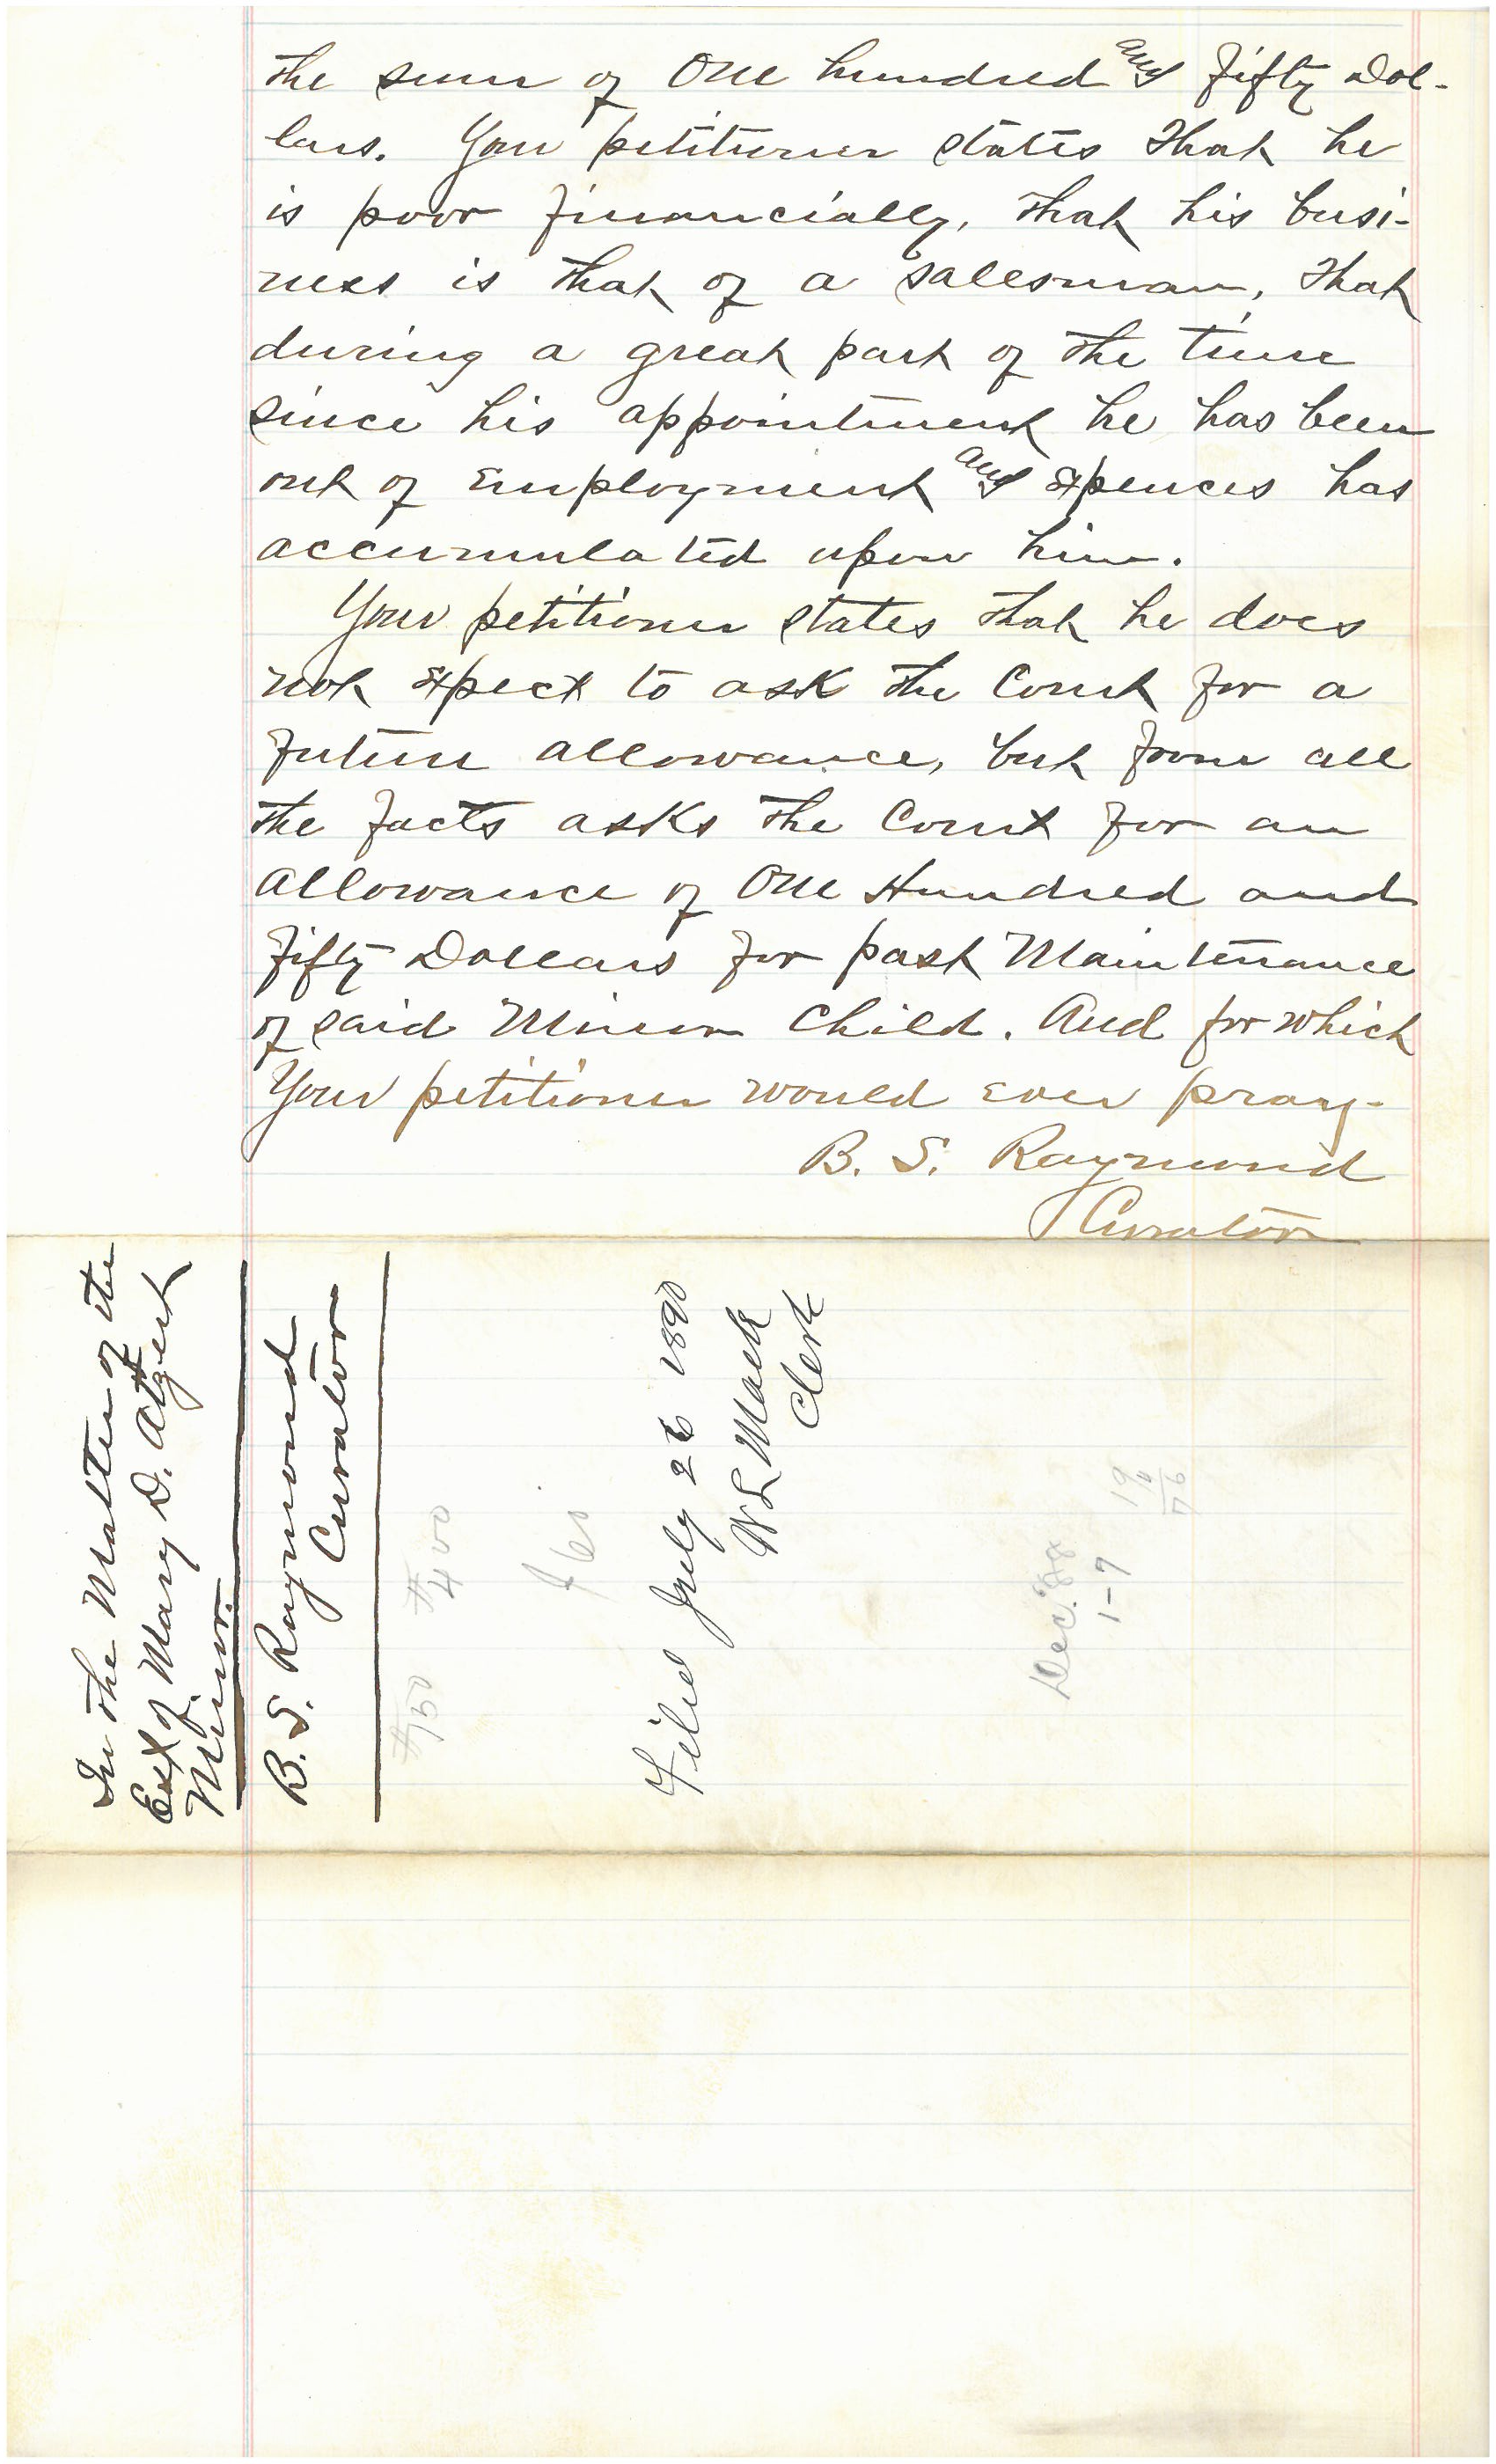 the sum of One hundred and fifty Dol-
lars. Your petitioner states that he
is poor financially, that his busi-
ness is that of a salesman, that
during a great part of the time
since his appointment he has been
out of Employment and Expences has
accumulated upon him.
Your petitioner states that he does
not Expect to ask the Court for a
future allowance, but from all
the facts asks the Court for an
allowance of One Hundred and
fifty Dollars for past Maintenance
of said Minor Child. And for which
Your petitioner would ever pray-
B. S. Raymond
Curator
In the Matter of the
Est of Mary D. Atzert
Minor.
B. S. Raymond
Curator
$150 $400
Filed July 26 1890
W L Mack
Clerk
Dec. '88
1-7
19
4
76